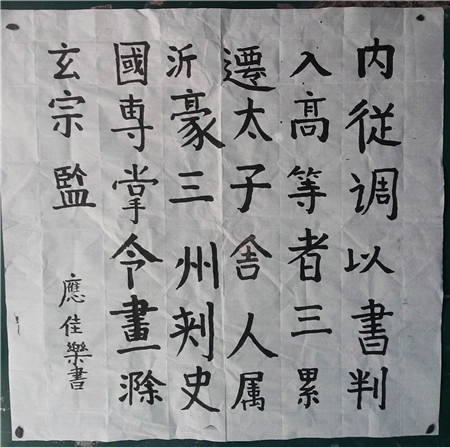 内従调以書判
入高等者三累
遷太子舍人属
沂豪三州刺史
國専掌令畫滁
玄宗監
應佳樂書